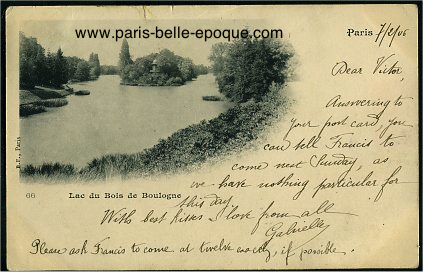 www.paris-belle-epoque.com
Paris 7/2/06
Dear Victor,
Answering to
your post card, you
can tell Francis to
come next Sunday, as
we have nothing particular for
this day.
With best kisses & love from all
Gabrielle
Please ask Francis to come at twelve exactly, if possible.
B.F., Paris
66 Lac du Bois de Boulogne